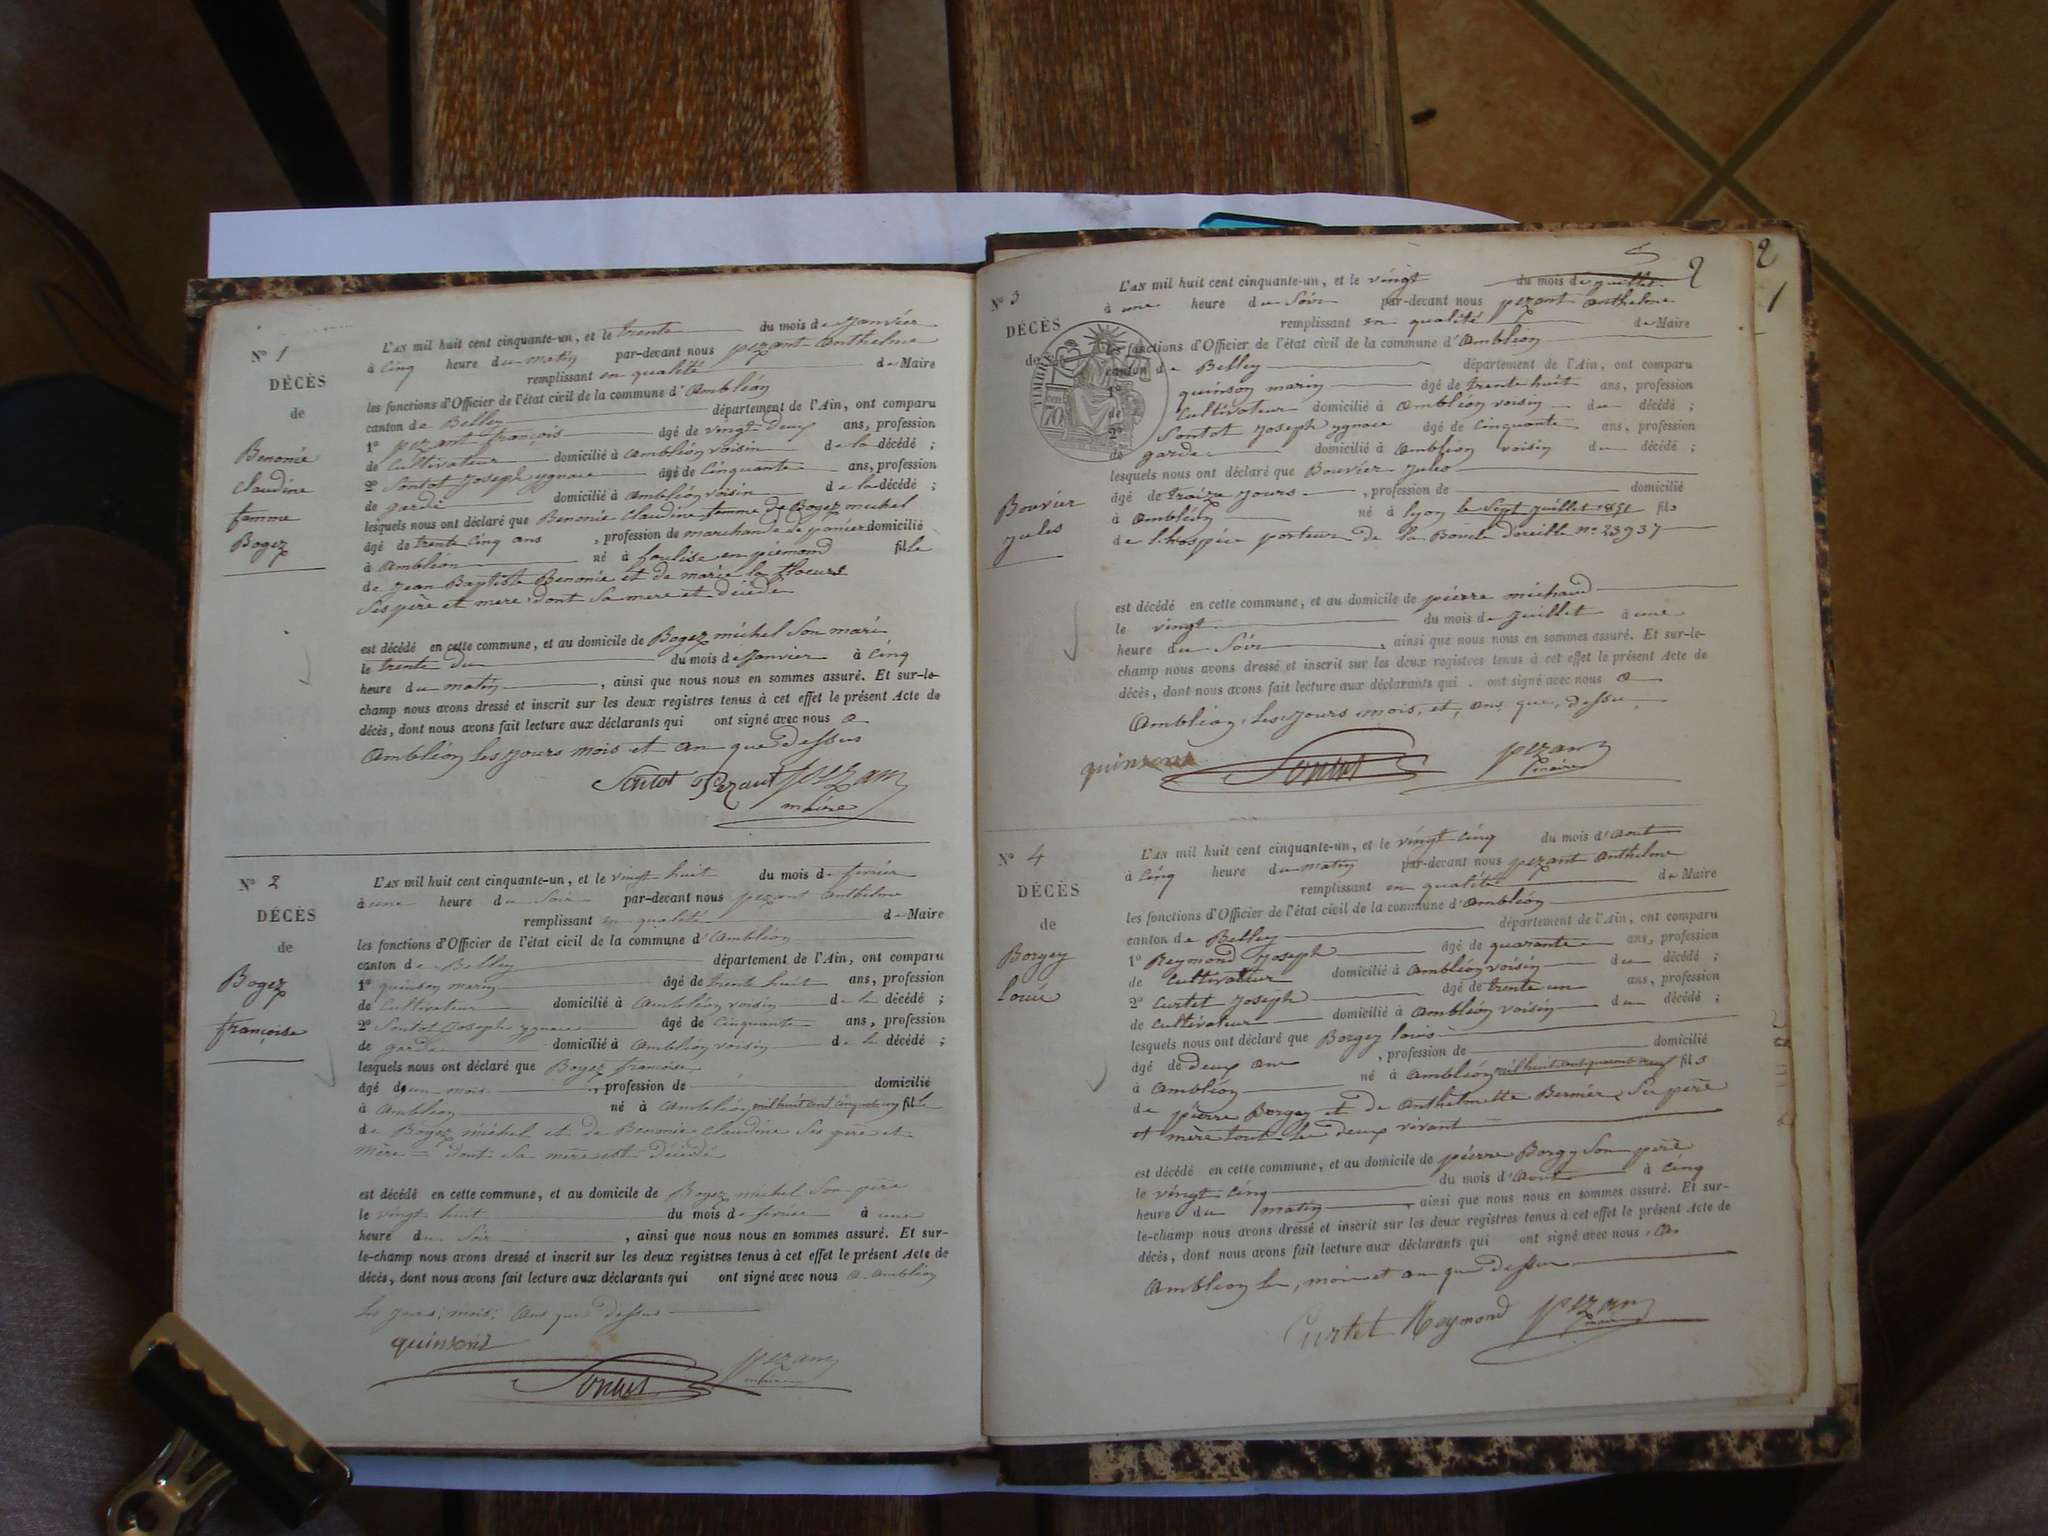 N° 1
DÉCÈS
de
Benonie
Claudine
femme
Bogez
L'AN mil huit cent cinquante-un, et le trente du mois de Janvier
à cinq heure du matin par-devant nous pezant anthelme
remplissant en qualité de Maire
les fonctions d'Officier de l'état civil de la commune d'Ambléon
canton de Belley département de l'Ain, ont comparu
1° pezant françois âgé de vingt deux ans, profession
de Cultivateur domicilié à Ambléon voisin de la décédé ;
2° Sontot Joseph ygnace âgé de Cinquante ans, profession
de garde domicilié à Ambléon voisin de la décédé ;
lesquels nous ont déclaré que Benonie Claudine femme de Bogez michel
âgé de trente cinq ans , profession de marchande de panier domicilié
à Ambléon né à foulise en piémond fille
de Jean Baptiste Benonie et de marie la
Ses père et mere dont sa mere est décédé
est décédé en cette commune, et au domicile de Bogez michel Son mari
le trente du du mois de Janvier à cinq
heure du matin , ainsi que nous nous en sommes assuré. Et sur-le-
champ nous avons dressé et inscrit sur les deux registres tenus à cet effet le présent Acte de
décès, dont nous avons fait lecture aux déclarants qui ont signé avec nous a
Ambléon les jours mois et an que dessus
Sontot Pezant Pezant
maire
N° 2
DÉCÈS
de
Bogez
françoise
L'AN mil huit cent cinquante-un, et le vingt huit du mois de fevrier
à une heure du Soir par-devant nous pezant anthelme
remplissant en qualité de Maire
les fonctions d'Officier de l'état civil de la commune d'Ambléon
canton de Belley département de l'Ain, ont comparu
1° quinson marin âgé de trente huit ans, profession
de Cultivateur domicilié à Ambléon voisin de la décédé ;
2° Sontot Joseph ygnace âgé de Cinquante ans, profession
de garde domicilié à Ambléon voisin de la décédé ;
lesquels nous ont déclaré que Bogez francoise
âgé d'un mois , profession de domicilié
à Ambléon né à Ambléon mil huit cent cinquante un fille
de Bogez michel et de Benonie Claudine Ses père et
mère dont sa mère est décédé
est décédé en cette commune, et au domicile de Bogez michel Son père
le vingt huit du mois de fevrier à une
heure du Soir , ainsi que nous nous en sommes assuré. Et sur-
le-champ nous avons dressé et inscrit sur les deux registres tenus à cet effet le présent Acte de
décès, dont nous avons fait lecture aux déclarants qui ont signé avec nous a Ambléon
les jours, mois, ans que dessus
quinsont
Sontot pezant
maire
2
2
1
N° 3
DÉCÈS
de
TIMBRE
70
Bouvier
jules
L'AN mil huit cent cinquante-un, et le vingt du mois de juillet
à une heure du Soir par-devant nous pezant anthelme
remplissant en qualité de Maire
les fonctions d'Officier de l'état civil de la commune d'Ambléon
canton de Belley département de l'Ain, ont comparu
1° quinson marin âgé de trente huit ans, profession
de Cultivateur domicilié à Ambléon voisin du décédé ;
2° Sontot Joseph ygnace âgé de cinquante ans, profession
de garde domicilié à Ambléon voisin du décédé ;
lesquels nous ont déclaré que Bouvier Jules
âgé de traize jours , profession de domicilié
à Ambléon né à lyon le Sept juillet 1851 fils
de l'hospice porteur de la Boucle d'oreille n° 23937
est décédé en cette commune, et au domicile de pierre michaud
le vingt du mois de juillet à une
heure du Soir , ainsi que nous nous en sommes assuré. Et sur-le-
champ nous avons dressé et inscrit sur les deux registres tenus à cet effet le présent Acte de
décès, dont nous avons fait lecture aux déclarants qui ont signé avec nous a
Ambléon, les jours mois, et, ans, que, dessu
quinsont Sontot pezant
maire
N° 4
DÉCÈS
de
Borgey
louis
L'AN mil huit cent cinquante-un, et le vingt cinq du mois d'Aout
à cinq heure du matin par-devant nous pezant anthelme
remplissant en qualité de Maire
les fonctions d'Officier de l'état civil de la commune d'Ambléon
canton de Belley département de l'Ain, ont comparu
1° Reymond Joseph âgé de quarante ans, profession
de Cultivateur domicilié à Ambléon voisin du décédé ;
2° Curtet Joseph âgé de trente un ans, profession
de Cultivateur domicilié à Ambléon voisin du décédé ;
lesquels nous ont déclaré que Borgey louis
âgé de deux an , profession de domicilié
à Ambléon né à Ambléon mil huit cent quarante neuf fils
de pierre Borgey et de Anthelmette Bernier Ses père
et mère tout les deux vivant
est décédé en cette commune, et au domicile de pierre Borgy Son père
le vingt cinq du mois d'Aout à cinq
heure du matin , ainsi que nous nous en sommes assuré. Et sur-
le-champ nous avons dressé et inscrit sur les deux registres tenus à cet effet le présent Acte de
décès, dont nous avons fait lecture aux déclarants qui ont signé avec nous, a
Ambléon les, mois et an que dessus
Curtet Reymond pezant
maire